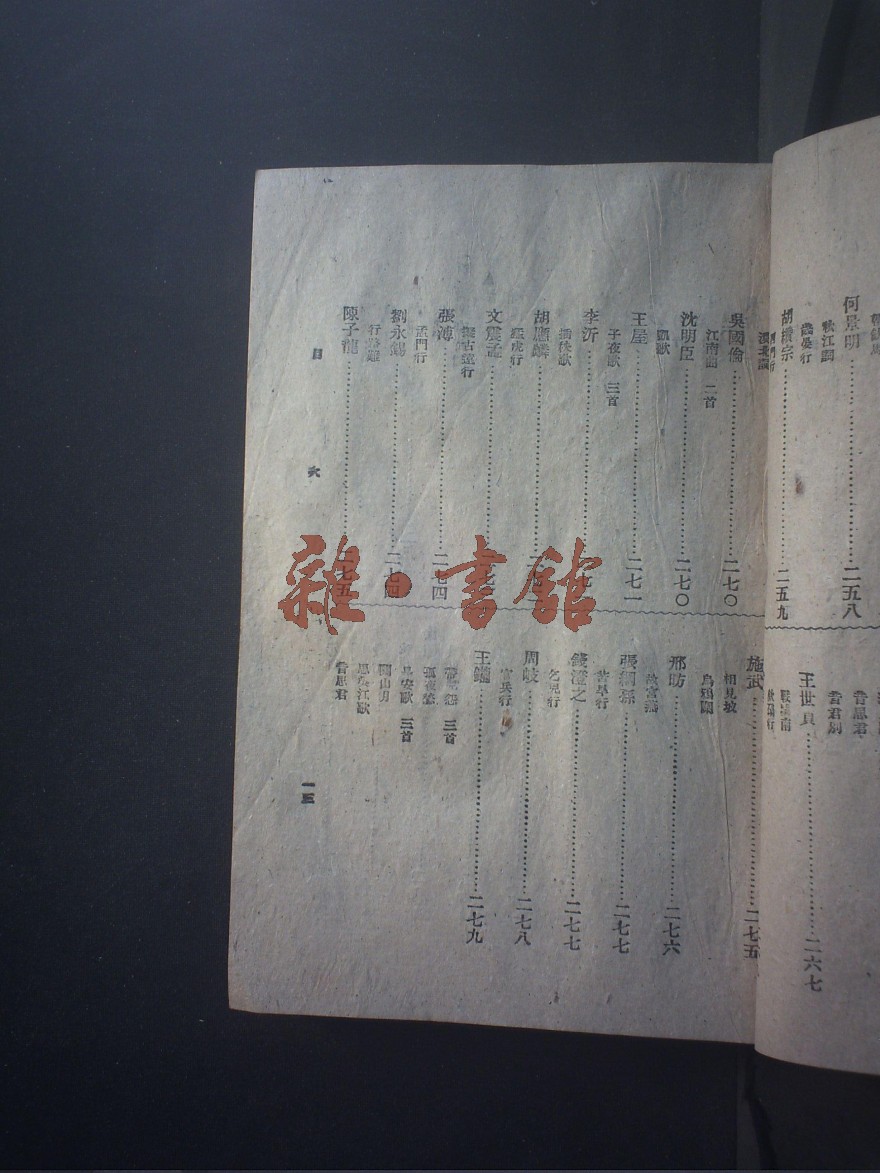 何景明……二五八
秋江詞
歲晏行
胡纘宗……二五九
王世貞……二六七
戰城南
吳國倫……二七〇
江南曲 二首
沈明臣……二七〇
凱歌
王屋……二七一
子夜歌 三首
李沂
插秧歌
胡應麟
猛虎行
文震孟
擬古遠行
張溥……二七四
孟門行
劉永錫……二七四
行路難
陳子龍……二七五
施武……二七五
相見坡
烏鴉關
邢昉……二七六
故宮燕
張綱孫……二七七
苦旱行
錢澄之……二七七
乞兒行
周岐……二七八
官兵行
王鏞……二七九
三首
三首
關山月
昔思君
目
六
一三
雜·書館